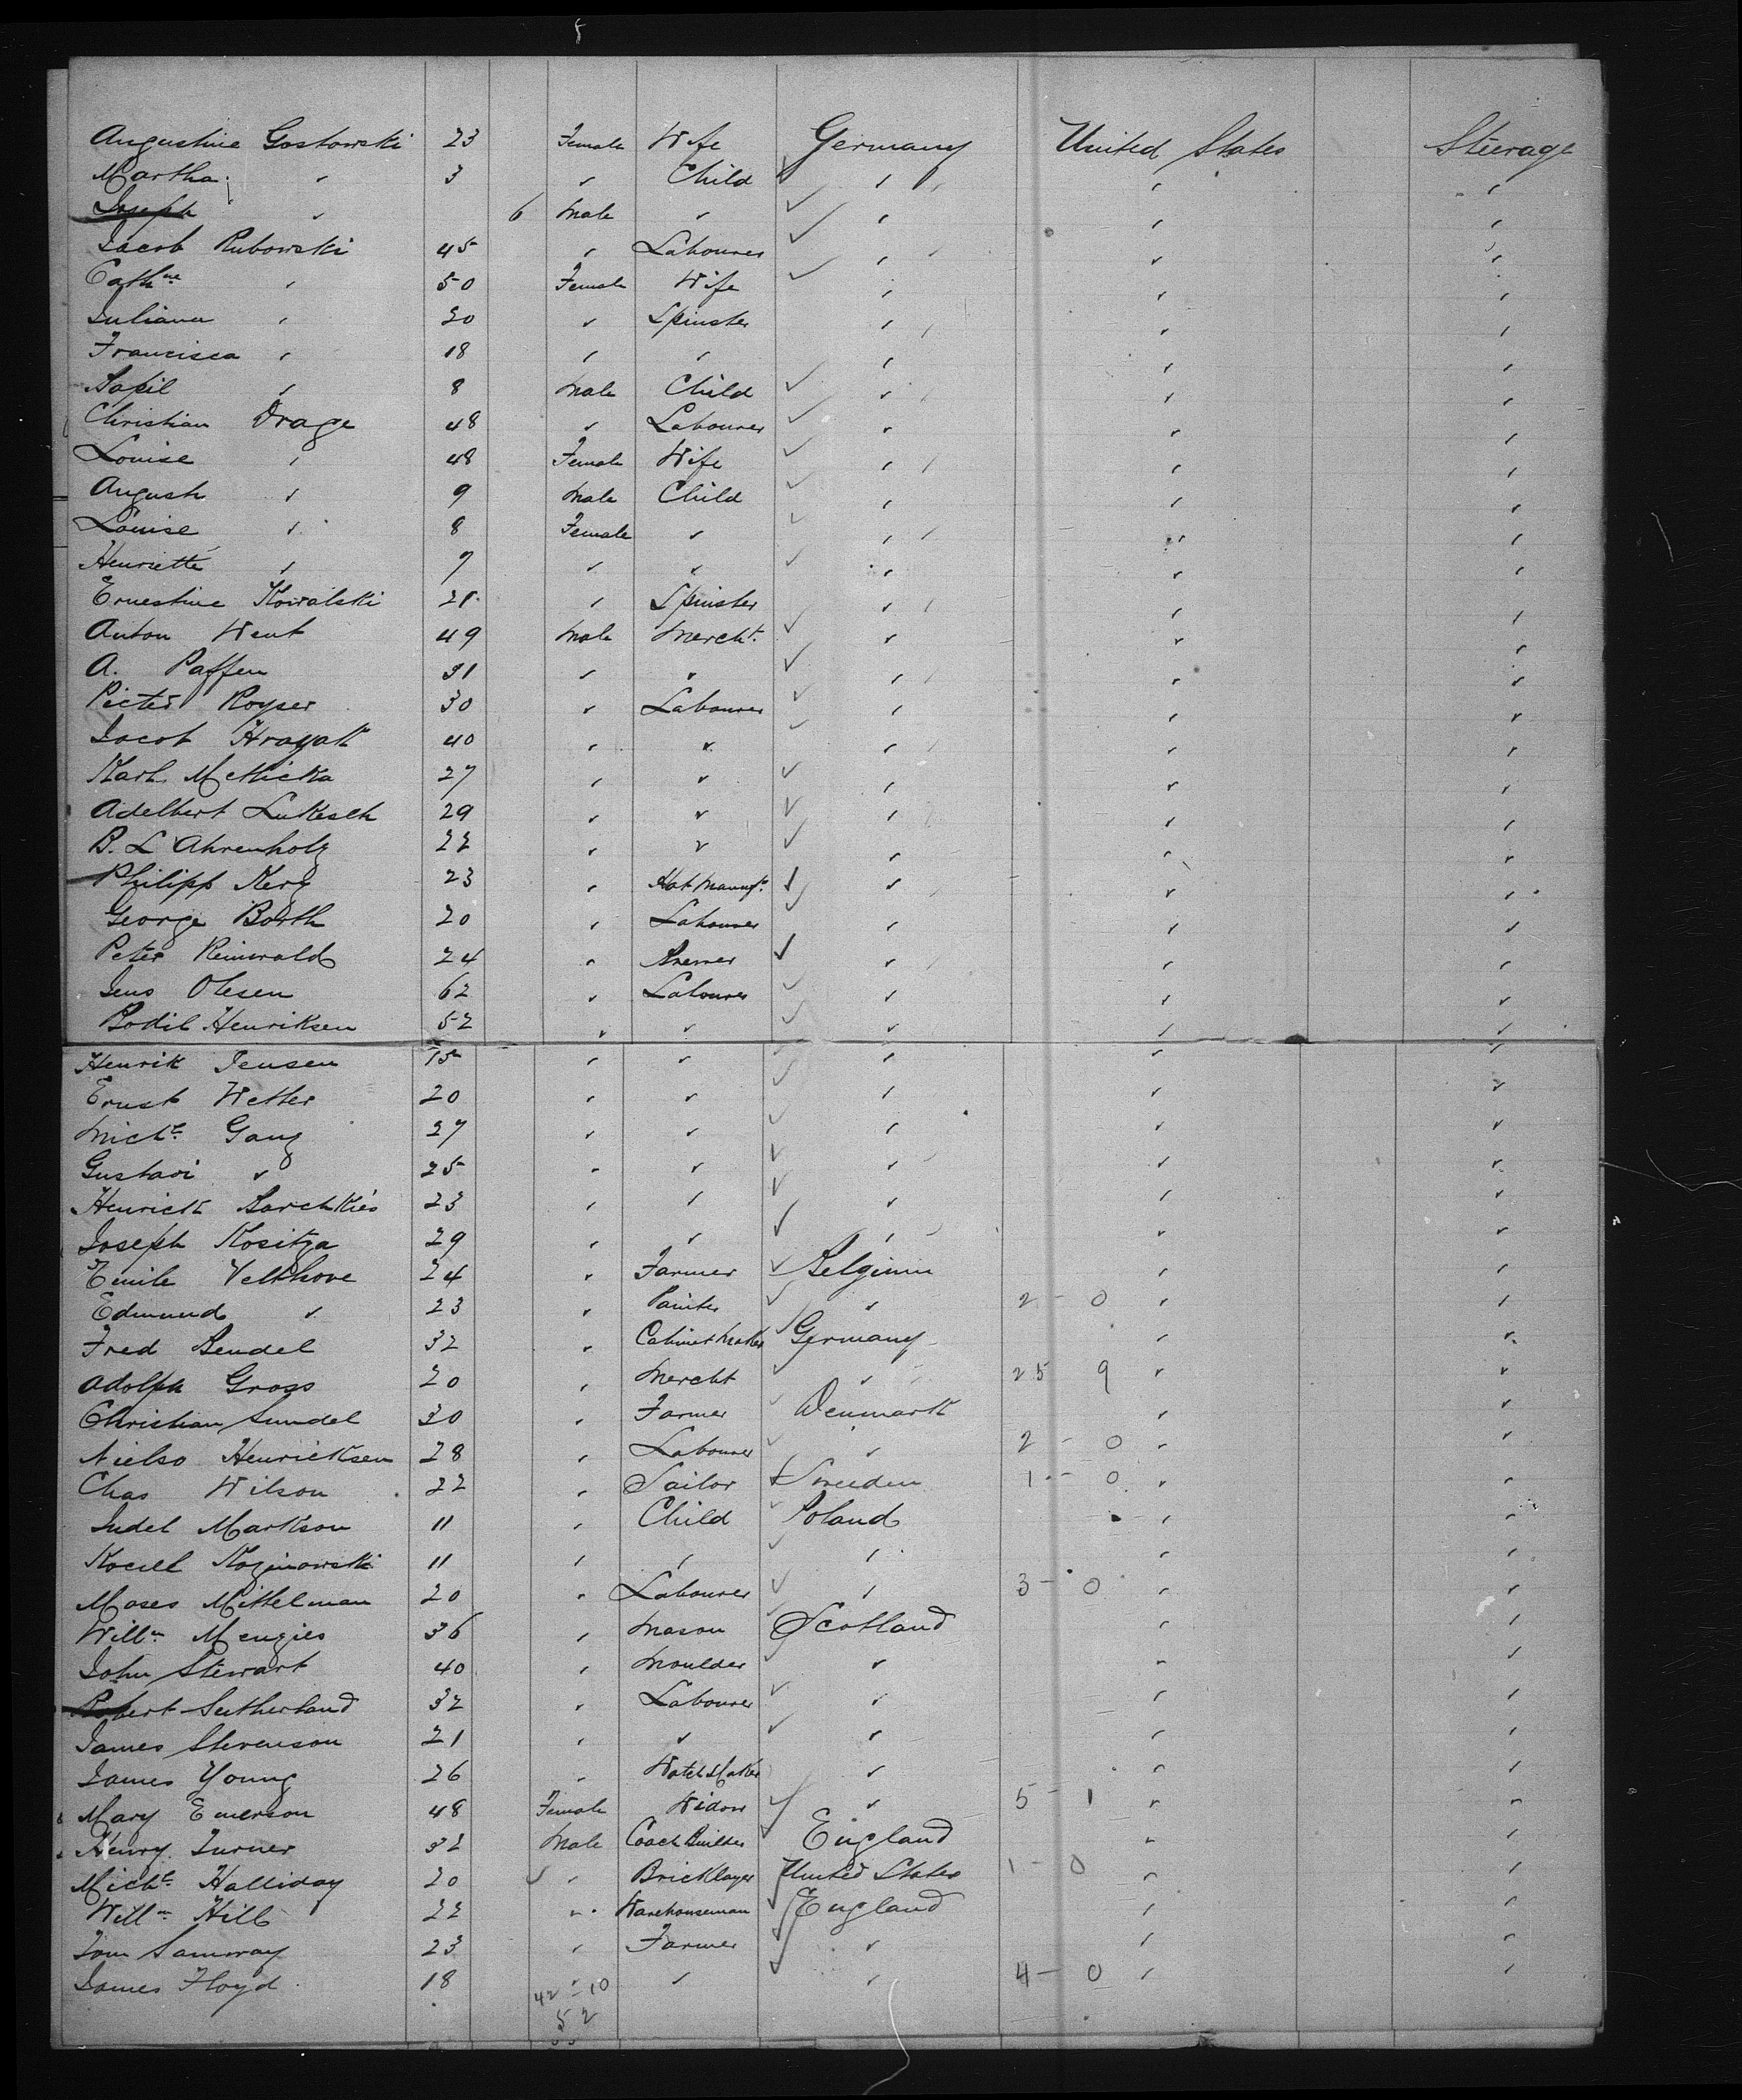 Augustine Gostowski 23 Female Wife Germany United States Steerage
Martha " 3 " Child " " "
Joseph " 6 Male " " " "
Jacob Rubowski 45 " Labourer " " "
Cathne " 50 Female Wife " " "
Juliana " 20 " Spinster " " "
Francisca " 18 " " " " "
" 8 Male Child " " "
Christian Drage 48 " Labourer " " "
Louise " 48 Female Wife " " "
August " 9 Male Child " " "
Louise " 8 Female " " " "
Henriette " 7 " " " " "
Ernestine Kowalski 21 " Spinster " " "
Anton Went 49 Male Mercht. " " "
A. Paffen 31 " " " " "
Pieter Royser 30 " Labourer " " "
Jacob 40 " " " " "
Karl 27 " " " " "
Adelbert Lukesch 29 " " " " "
B. L Ahrenholz 22 " " " " "
Philipp Kerz 23 " Hat Manufr. " " "
George Borth 20 " Labourer " " "
Peter Reinwald 24 " Brewer " " "
Jens Olesen 62 " Labourer " " "
Bodil Henriksen 52 " " " " "
Henrik Jensen 15 " " " " "
Ernst Wetter 20 " " " " "
Michl. Ganz 27 " " " " "
Gustavi " 25 " " " " "
Henrick 23 " " " " "
Joseph Kositza 29 " " " " "
Emile Velthove 24 " Farmer Belgium " "
Edmund " 23 " Painter " 2 - 0 " "
Fred Bendel 32 " Cabinet Maker Germany " "
Adolph Gross 20 " Mercht " 25 9 " "
Christian Sundel 30 " Farmer Denmark " "
Nielso Henricksen 28 " Labourer " 2 - 0 " "
Chas Wilson 22 " Sailor Sweeden 1 - 0 " "
Judel Markson 11 " Child Poland " "
Kozinowski 11 " " " " "
Moses Mittelman 20 " Labourer " 3 - 0 " "
Willm Menzies 36 " Mason Scotland " "
John Stewart 40 " Moulder " " "
Robert Sutherland 32 " Labourer " " "
James Stevenson 21 " " " " "
James Young 26 " Watch Maker " " "
Mary Emerson 48 Female Widow " 5 - 1 " "
Henry Turner 32 Male Coach Builder England " "
Michl. Halliday 20 " Bricklayer United States 1 - 0 " "
Willm Hill 22 " Warehouseman England " "
Tom Samway 23 " Farmer " " "
James Floyd 18 " " " 4 - 0 " "
42 - 10
52